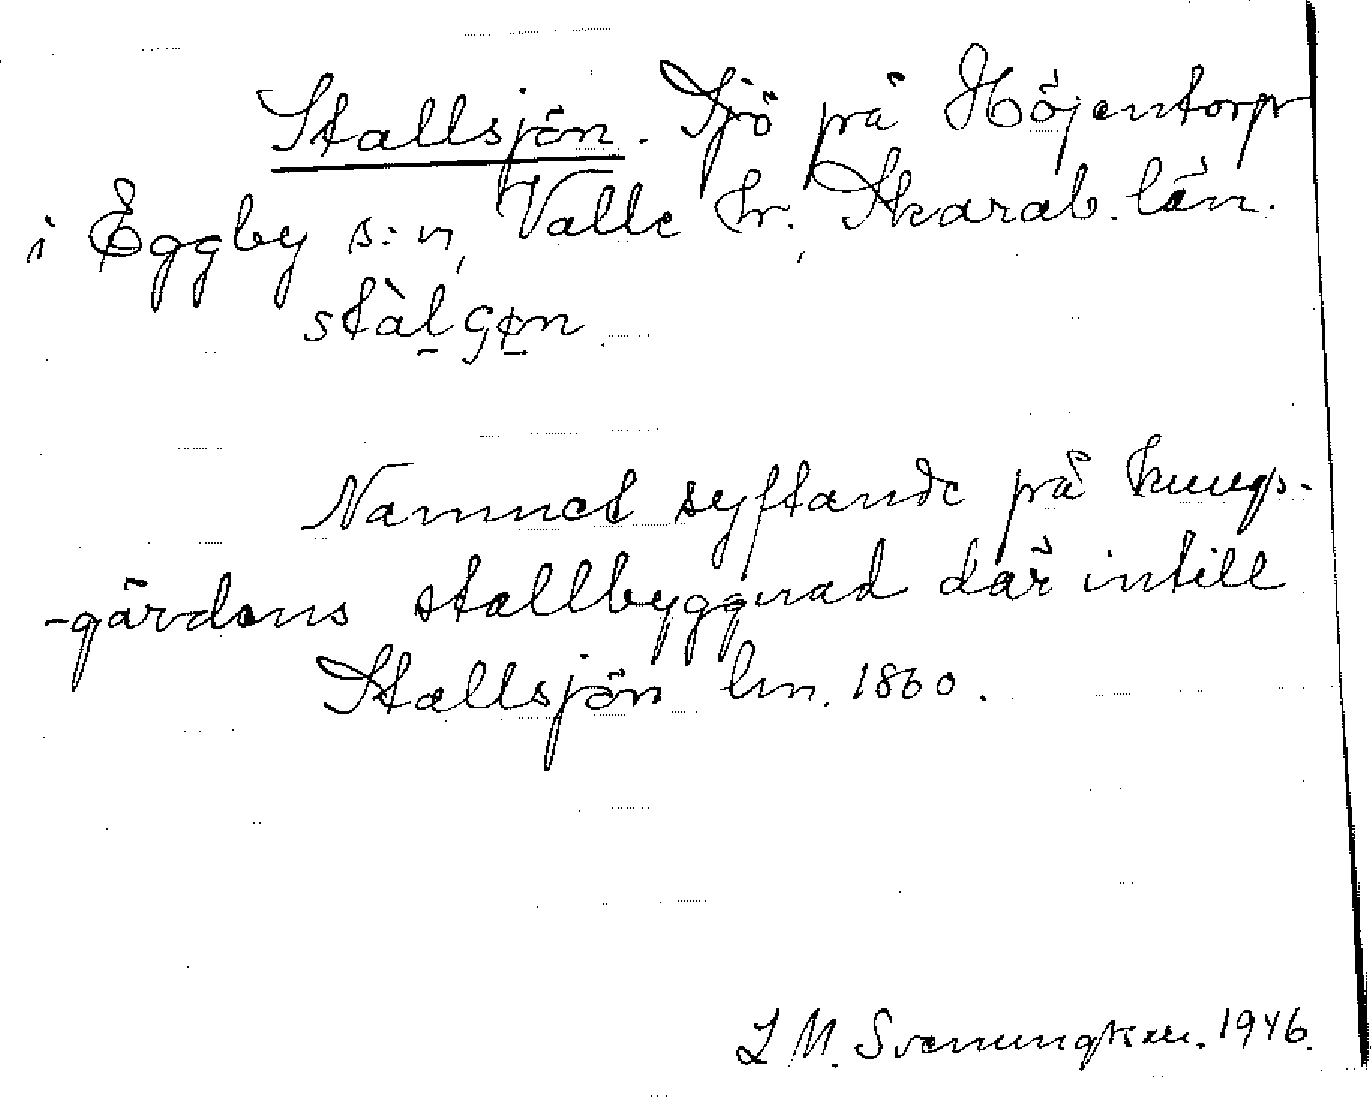 Stallsjön. Sjö på Höjentorp
i Eggby s:n, Valle hr., Skarab. län.
stàl̠ge̠n
Namnet syftande på kungs-
-gårdens stallbyggnad där intill
Stallsjön lm. 1860.
L M. Svenungsson. 1946.